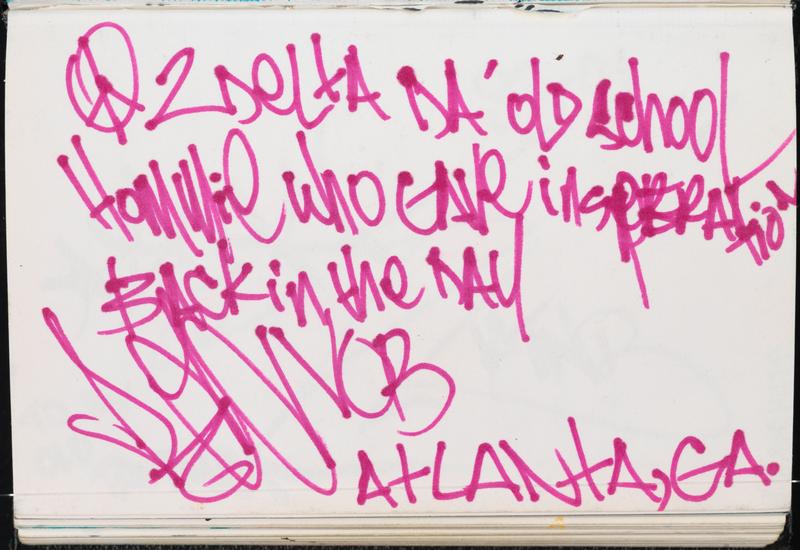 2 DELTA DA' OLD School
Hommie who GAVE inspERATion
BACK in the DAY
NCB
ATLANTA, GA.